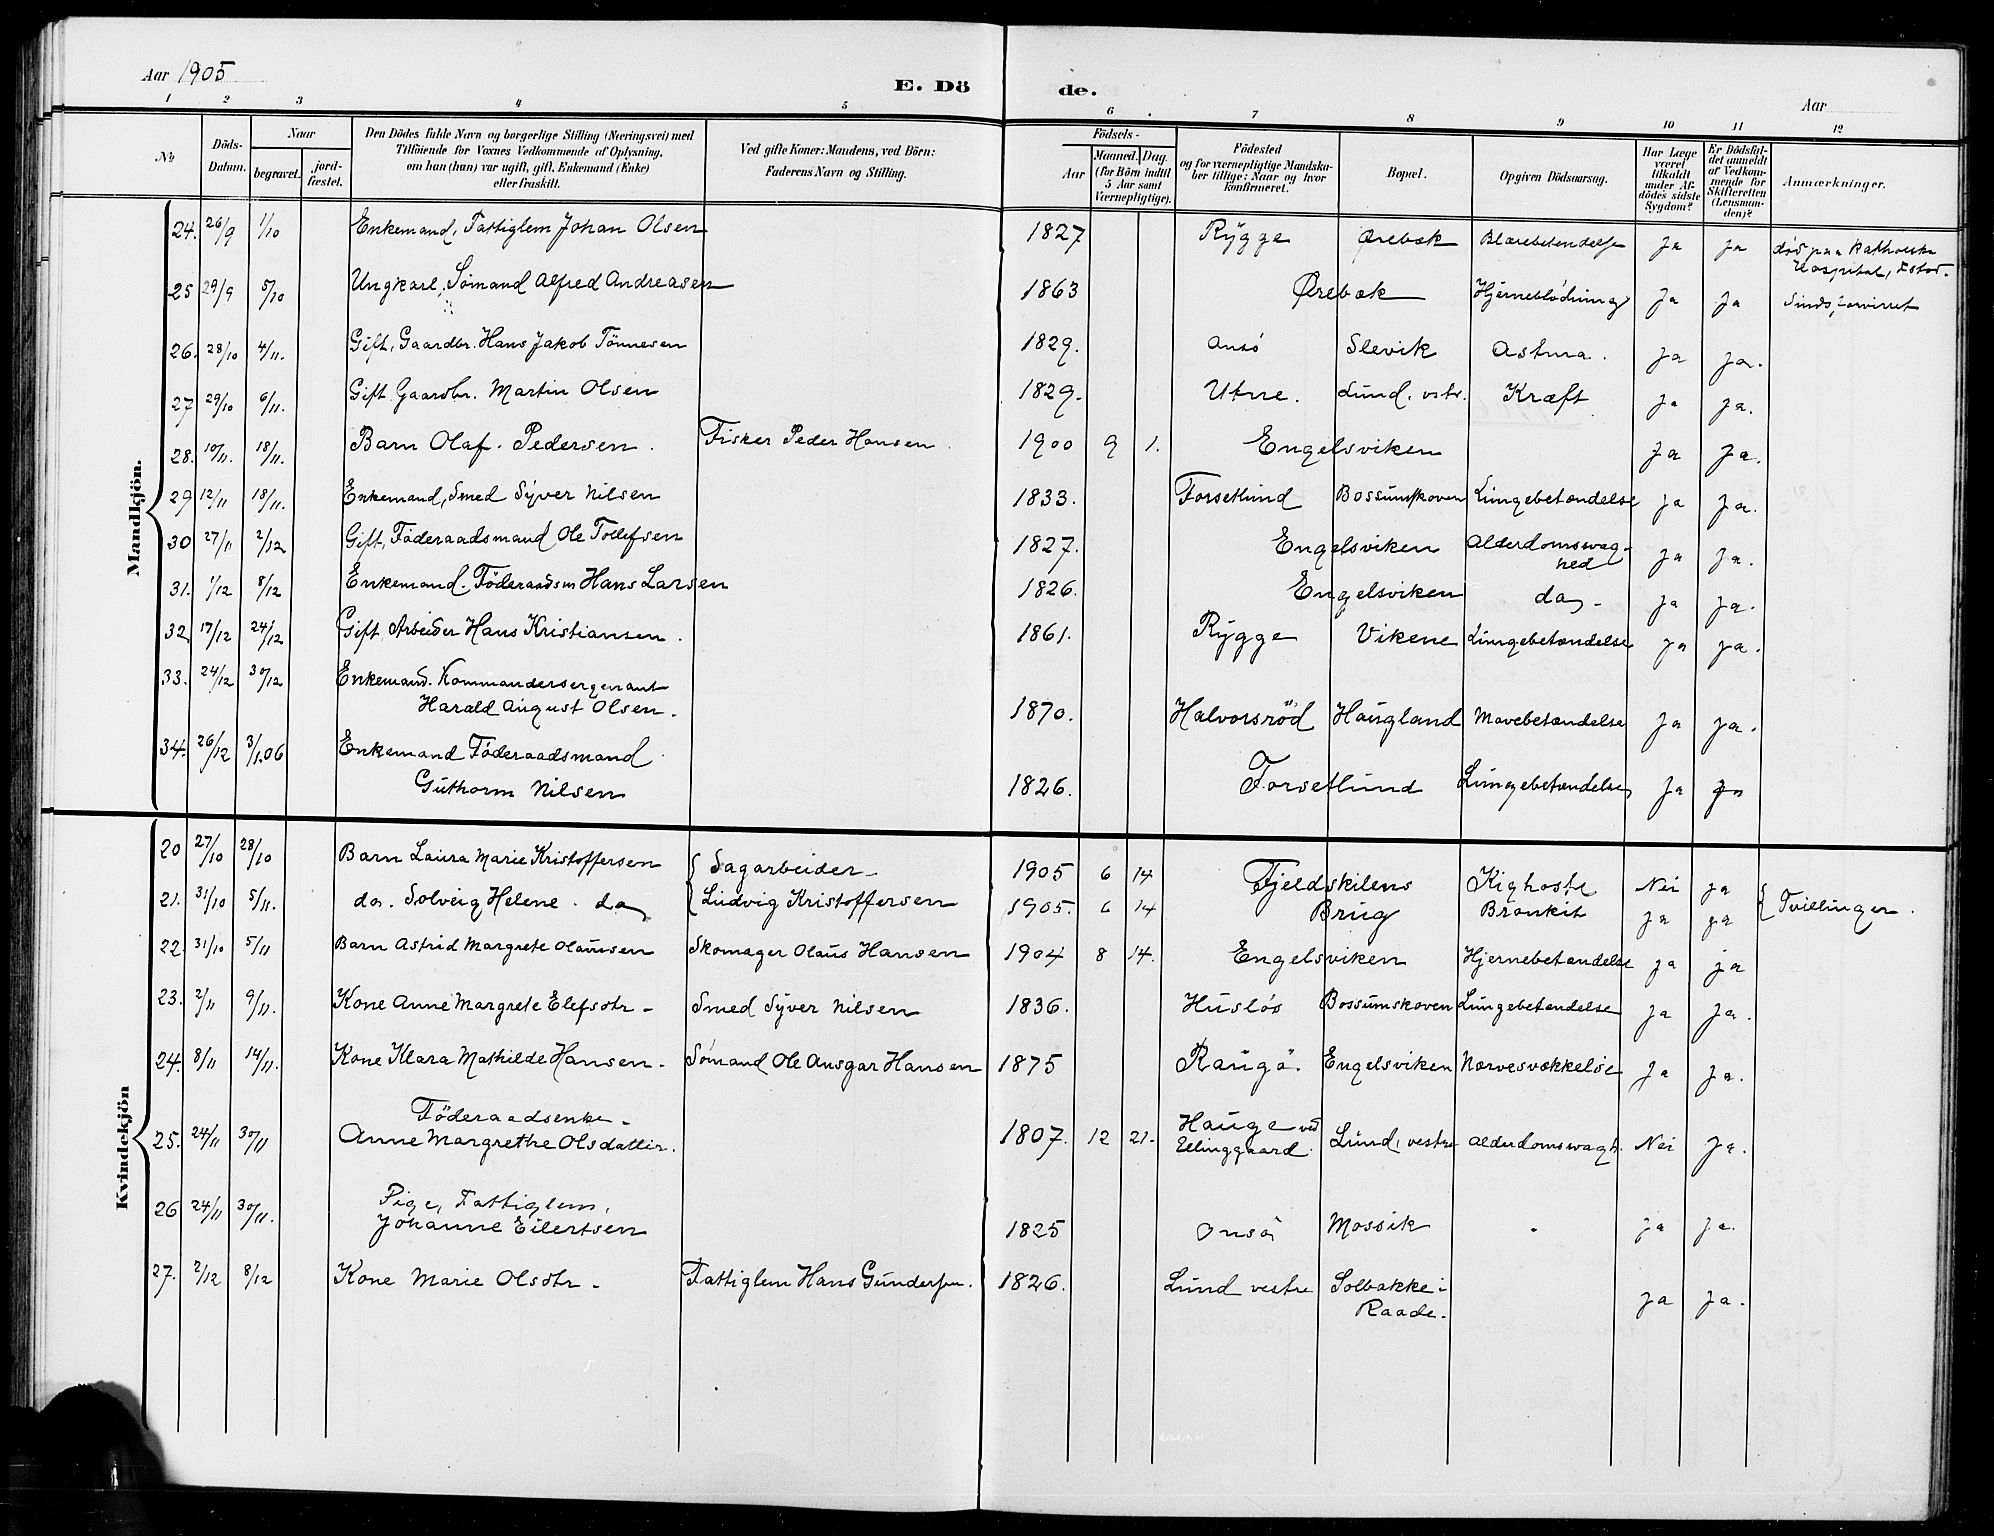 Aar 1905
E. Dö
de.
Aar
1 2 3 4 5 6 7 8 9 10 11 12
No
Döds-Datum.
Naar
begravet.
jord-fæstet.
Den Dödes fulde Navn og borgerlige Stilling (Næringsvei) med
Tilföiende for Voxnes Vedkommende af Oplysning,
om han (hun) var ugift, gift, Enkemand (Enke)
eller fraskilt.
Ved gifte Koner: Mandens, ved Börn:
Faderens Navn og Stilling.
Födsels-
Aar
Maaned.
Dag.
(for Börn indtil
5 Aar samt
Værnepligtige).
Födested
og for værnepligtige Mandska-
ber tillige: Naar og hvor
konfirmeret.
Bopæl.
Opgiven Dödsaarsag.
Har Læge
været
tilkaldt
under Af-
dödes sidste
Sygdom?
Er Dödsfal-
det anmeldt
af Vedkom-
mende for
Skifteretten
(Lensman-
den)?
Anmærkninger.
Mandkjön.
24. 26/9 1/10 Enkemand, Fattiglem Johan Olsen 1827 Rygge Ørebæk Blærebetændelse Ja Ja død paa katholske
Hospital, Fstad.
25 29/9 5/10 Ungkarl, Sömand Alfred Andreasen 1863 Ørebæk Hjerneblödning Ja Ja Sindsforvirret
26. 28/10 4/11. Gift, Gaardbr. Hans Jakob Tönnesen 1829. Onsö Slevik Astma. Ja Ja.
27 29/10 6/11. Gift Gaardbr. Martin Olsen 1829. Utne. Lund, vstr. Kræft Ja Ja.
28. 10/11. 18/11. Barn Olaf. Pedersen. Fisker Peder Hansen. 1900 9 1. Engelsviken Ja Ja.
29 12/11 18/11. Enkemand, Smed Syver Nilsen 1833. Forsetlund Bossumskoven Lungebetændelse Ja Ja.
30 27/11 2/12 Gift, Föderaadsmand Ole Tollefsen 1827. Engelsviken Alderdomssvag-
hed Ja Ja.
31. 1/12 8/12 Enkemand. Föderaadsm Hans Larsen 1826. Engelsviken do - Ja Ja.
32 17/12 24/12 Gift Arbeider Hans Kristiansen. 1861. Rygge Vikene Lungebetændelse Ja Ja.
33. 24/12 30/12 Enkemand. Kommandersergenant
Harald August Olsen. 1870. Halvorsröd Haugland Mavebetændelse Ja Ja.
34. 26/12 3/1.06 Enkemand Föderaadsmand
Guthorm Nilsen 1826. Forsetlund Lungebetændelse Ja Ja
Kvindekjön
20 27/10 28/10 Barn Laura Marie Kristoffersen Sagarbeider 1905 6 14 Fjeldskilens Kighoste Nei Ja
21. 31/10 5/11. do. Solveig Helene. do Ludvig Kristoffersen 1905. 6 14 Brug Bronkit Ja Ja Tvillinger.
22. 31/10 5/11 Barn Astrid Margrete Olaussen Skomager Olaus Hansen 1904 8 14. Engelsviken Hjernebetændelse Ja Ja
23. 2/11 9/11. Kone Anne Margrete Elefsdtr - Smed Syver Nilsen 1836. Huslös Bossumskoven Lungebetændelse Ja Ja.
24. 8/11 14/11. Kone Klara Mathilde Hansen - Sömand Ole Ansgar Hansen 1875 Raugö. Engelsviken Nervesvækkelse Ja Ja.
25. 24/11 30/11 Föderaadsenke -
Anne Margrethe Olsdatter. 1807. 12 21. Hauge ved
Ellinggaard Lund, vestre Alderdomssvagh. Nei Ja.
26 24/11 30/11. Pige, Fattiglem,
Johanne Eilertsen 1825 Onsö Mossik - Ja Ja.
27. 2/12 8/12 Kone Marie Olsdtr - Fattiglem Hans Gundersen. 1826. Lund vestre Solbakke i
Raade. Ja Ja.